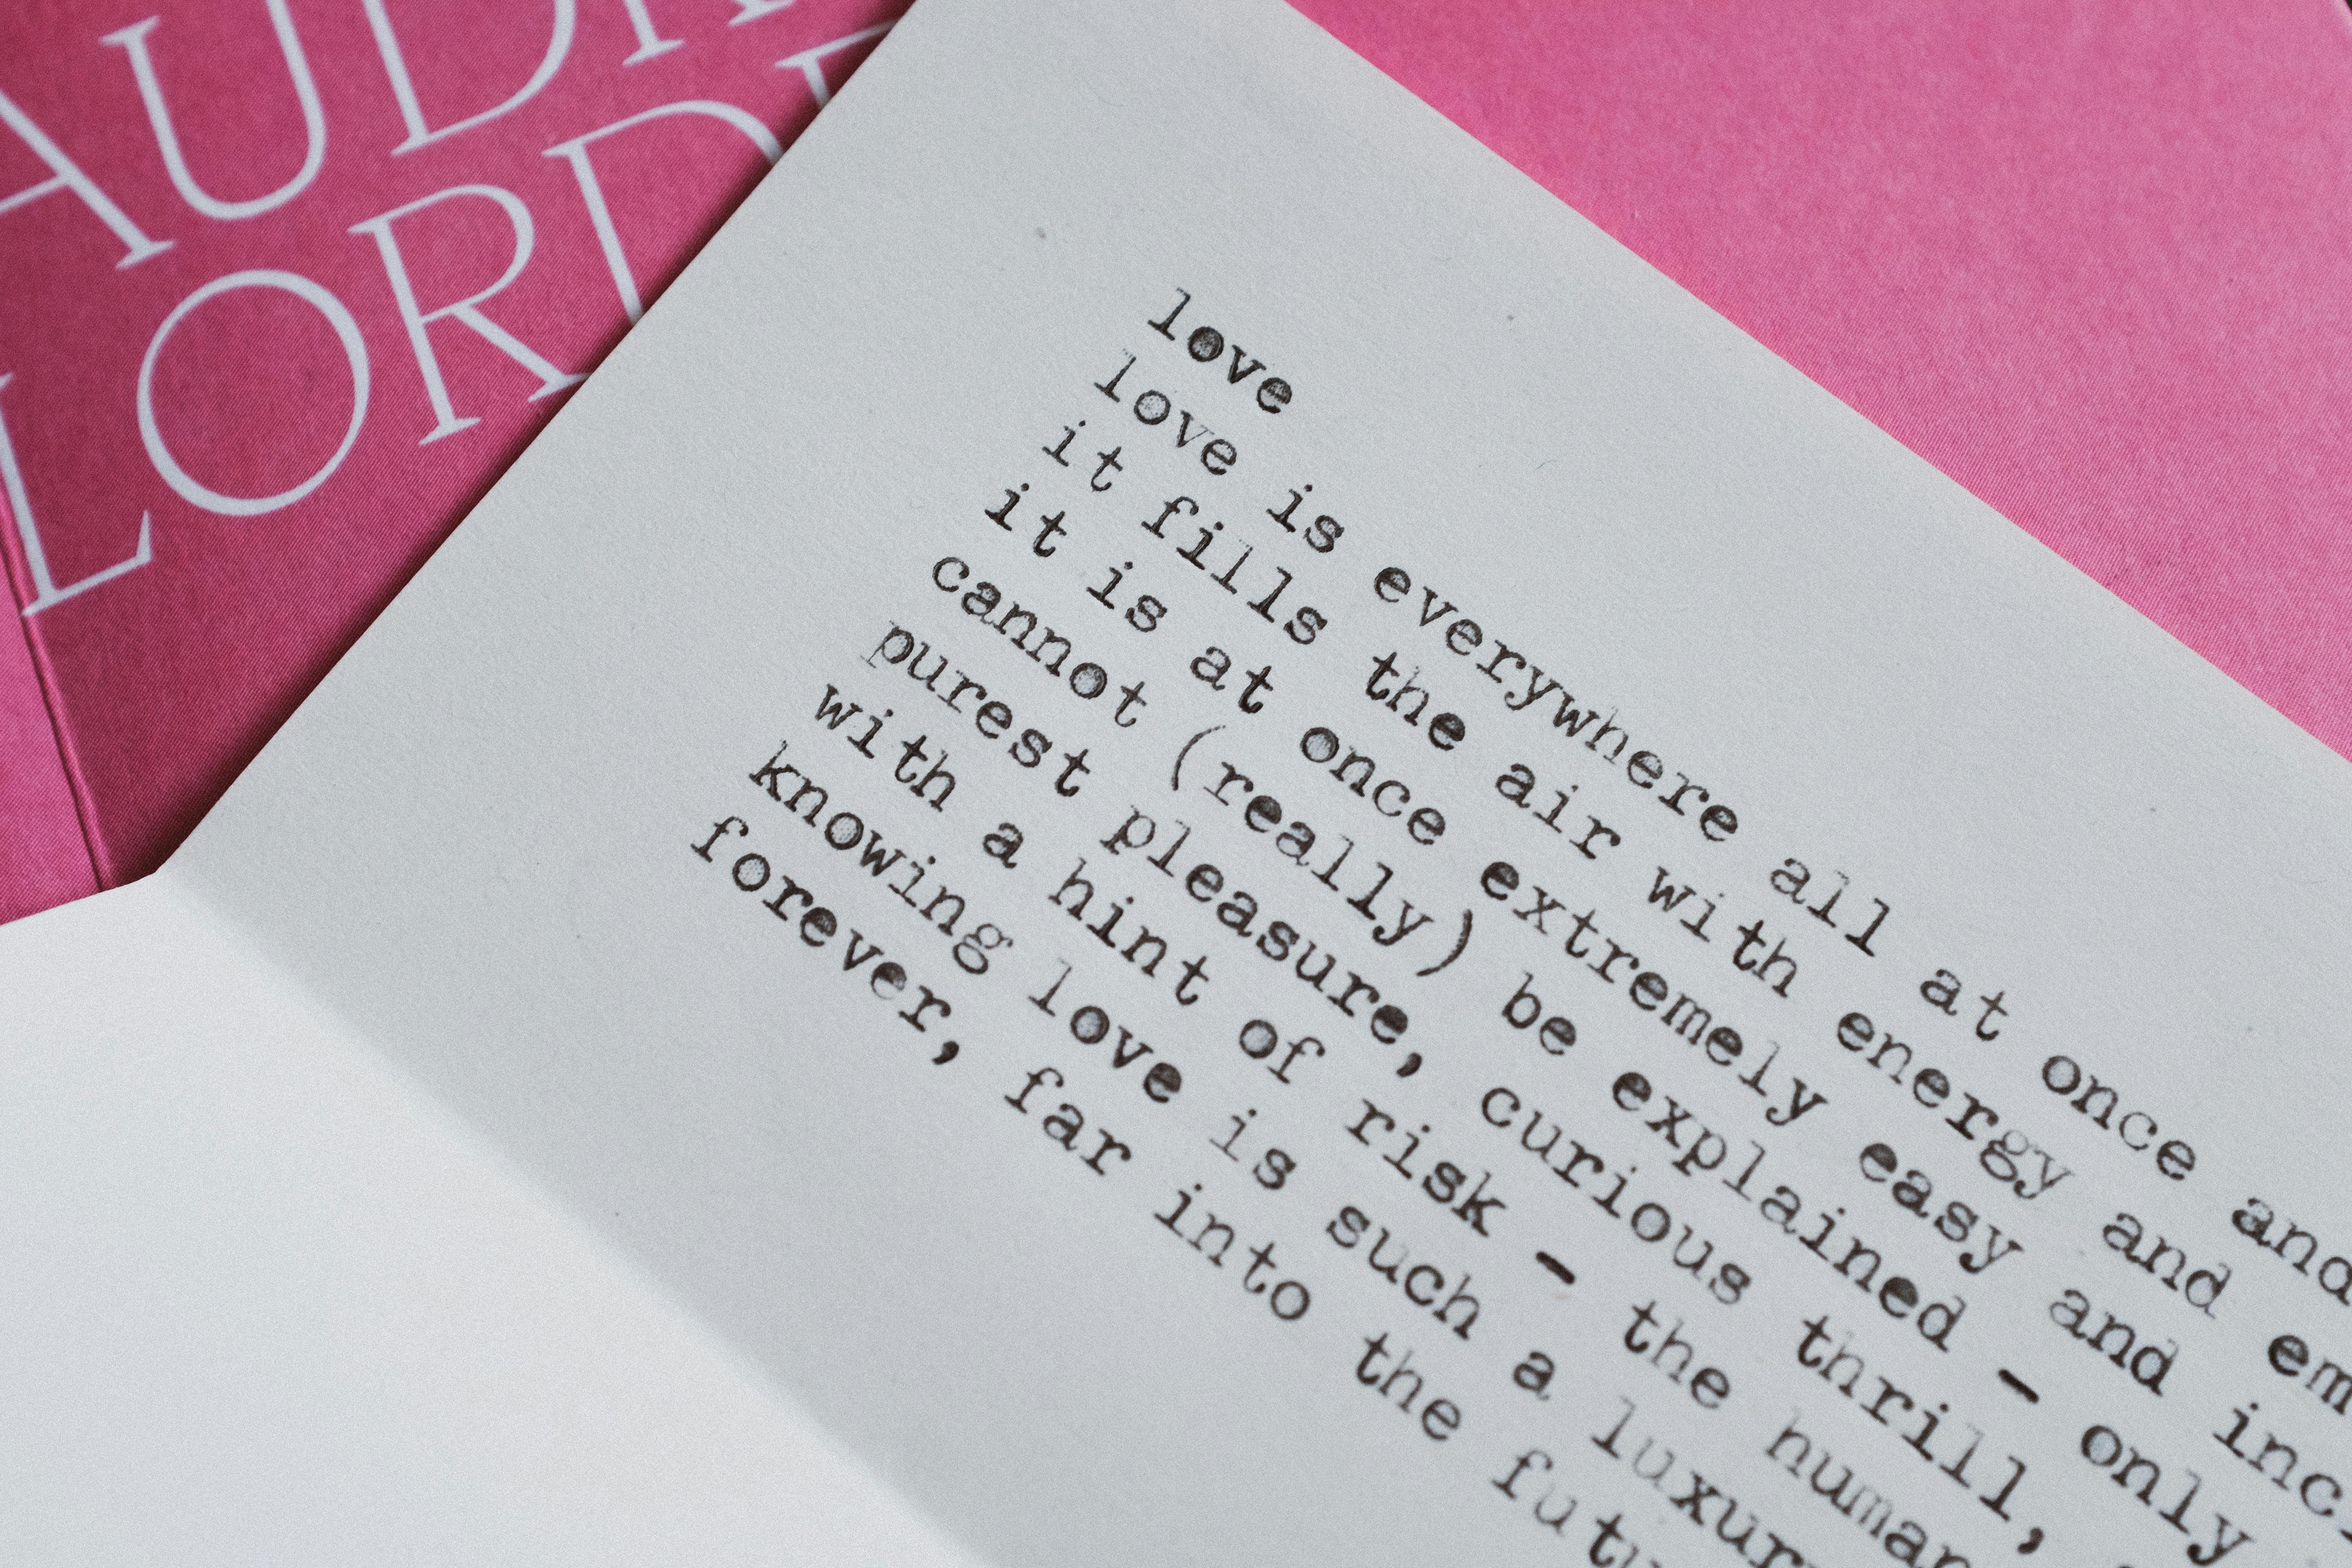 AUDR
LORD
love
love is everywhere all at once and
it fills the air with energy and em
it is at once extremely easy and inc
cannot (really) be explained - only
purest pleasure, curious thrill,
with a hint of risk - the human
knowing love is such a luxur
forever, far into the futu